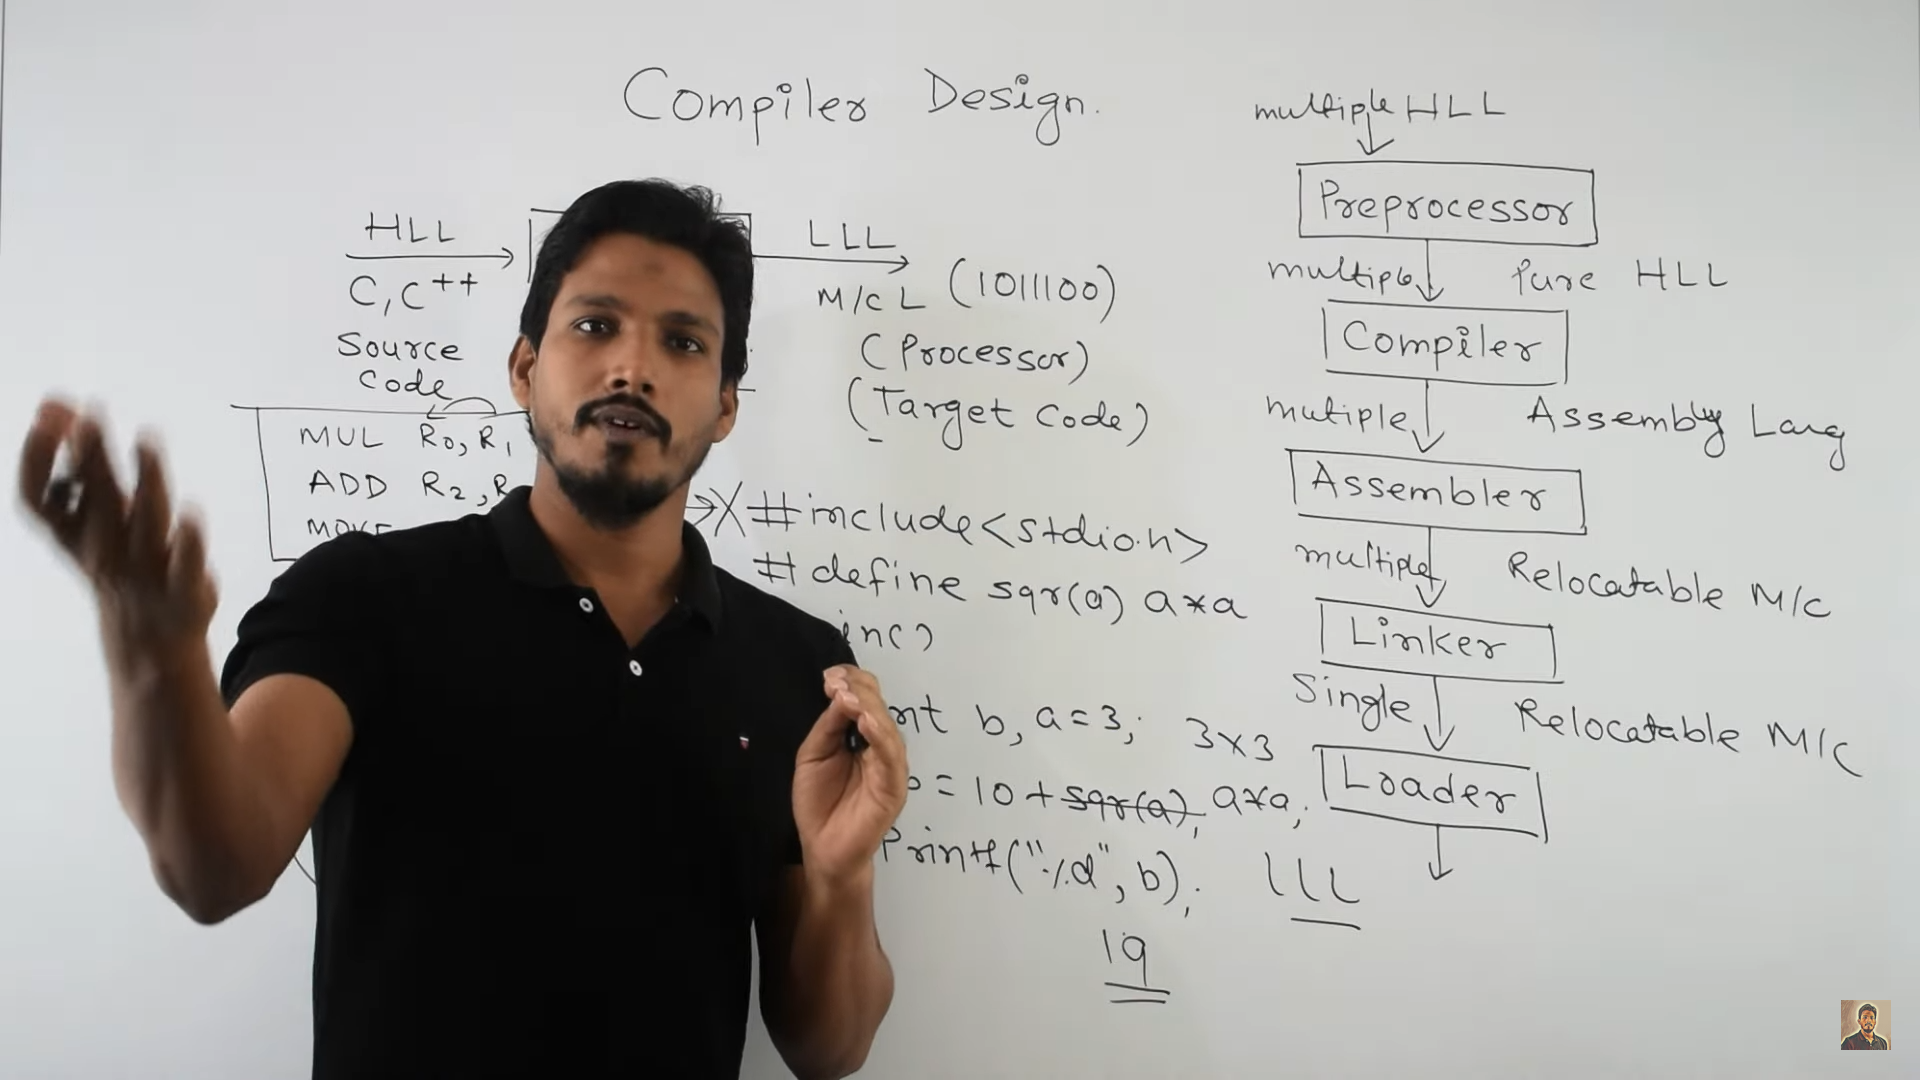 Compiler Design.
HLL
C, C++
Source
Code
LLL
M/C L (1011100)
(Processor)
(Target Code)
MUL R0, R1
ADD R2, R
MOVE
X #include<stdio.h>
#define sqr(a) a*a
in()
nt b, a=3; 3x3
= 10 + sqr(a); a*a;
Printf("%d", b);
19
LLL
multiple HLL
Preprocessor
multiple Pure HLL
Compiler
mutiple Assembly Lang
Assembler
multiple Relocatable M/C
Linker
Single Relocatable M/C
Loader